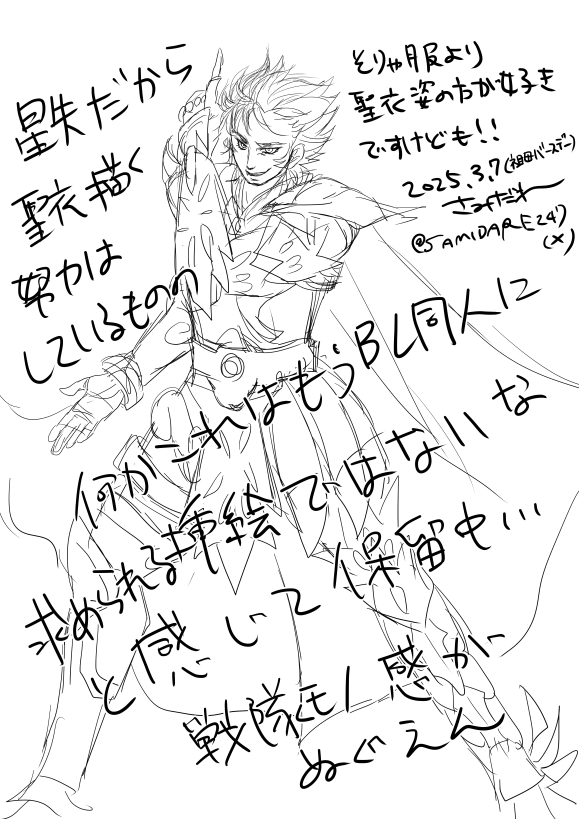 星矢だから
聖衣描く
努力は
しているものの
何かこれはもうBL同人に
求められる挿絵ではないな
と感じて保留中…
戦隊モノ感が
ぬぐえん
そりゃ服より
聖衣姿の方が好き
ですけども!!
2025.3.7(祖田バースデー)
さみだれ
@SAMIDARE247
(X)